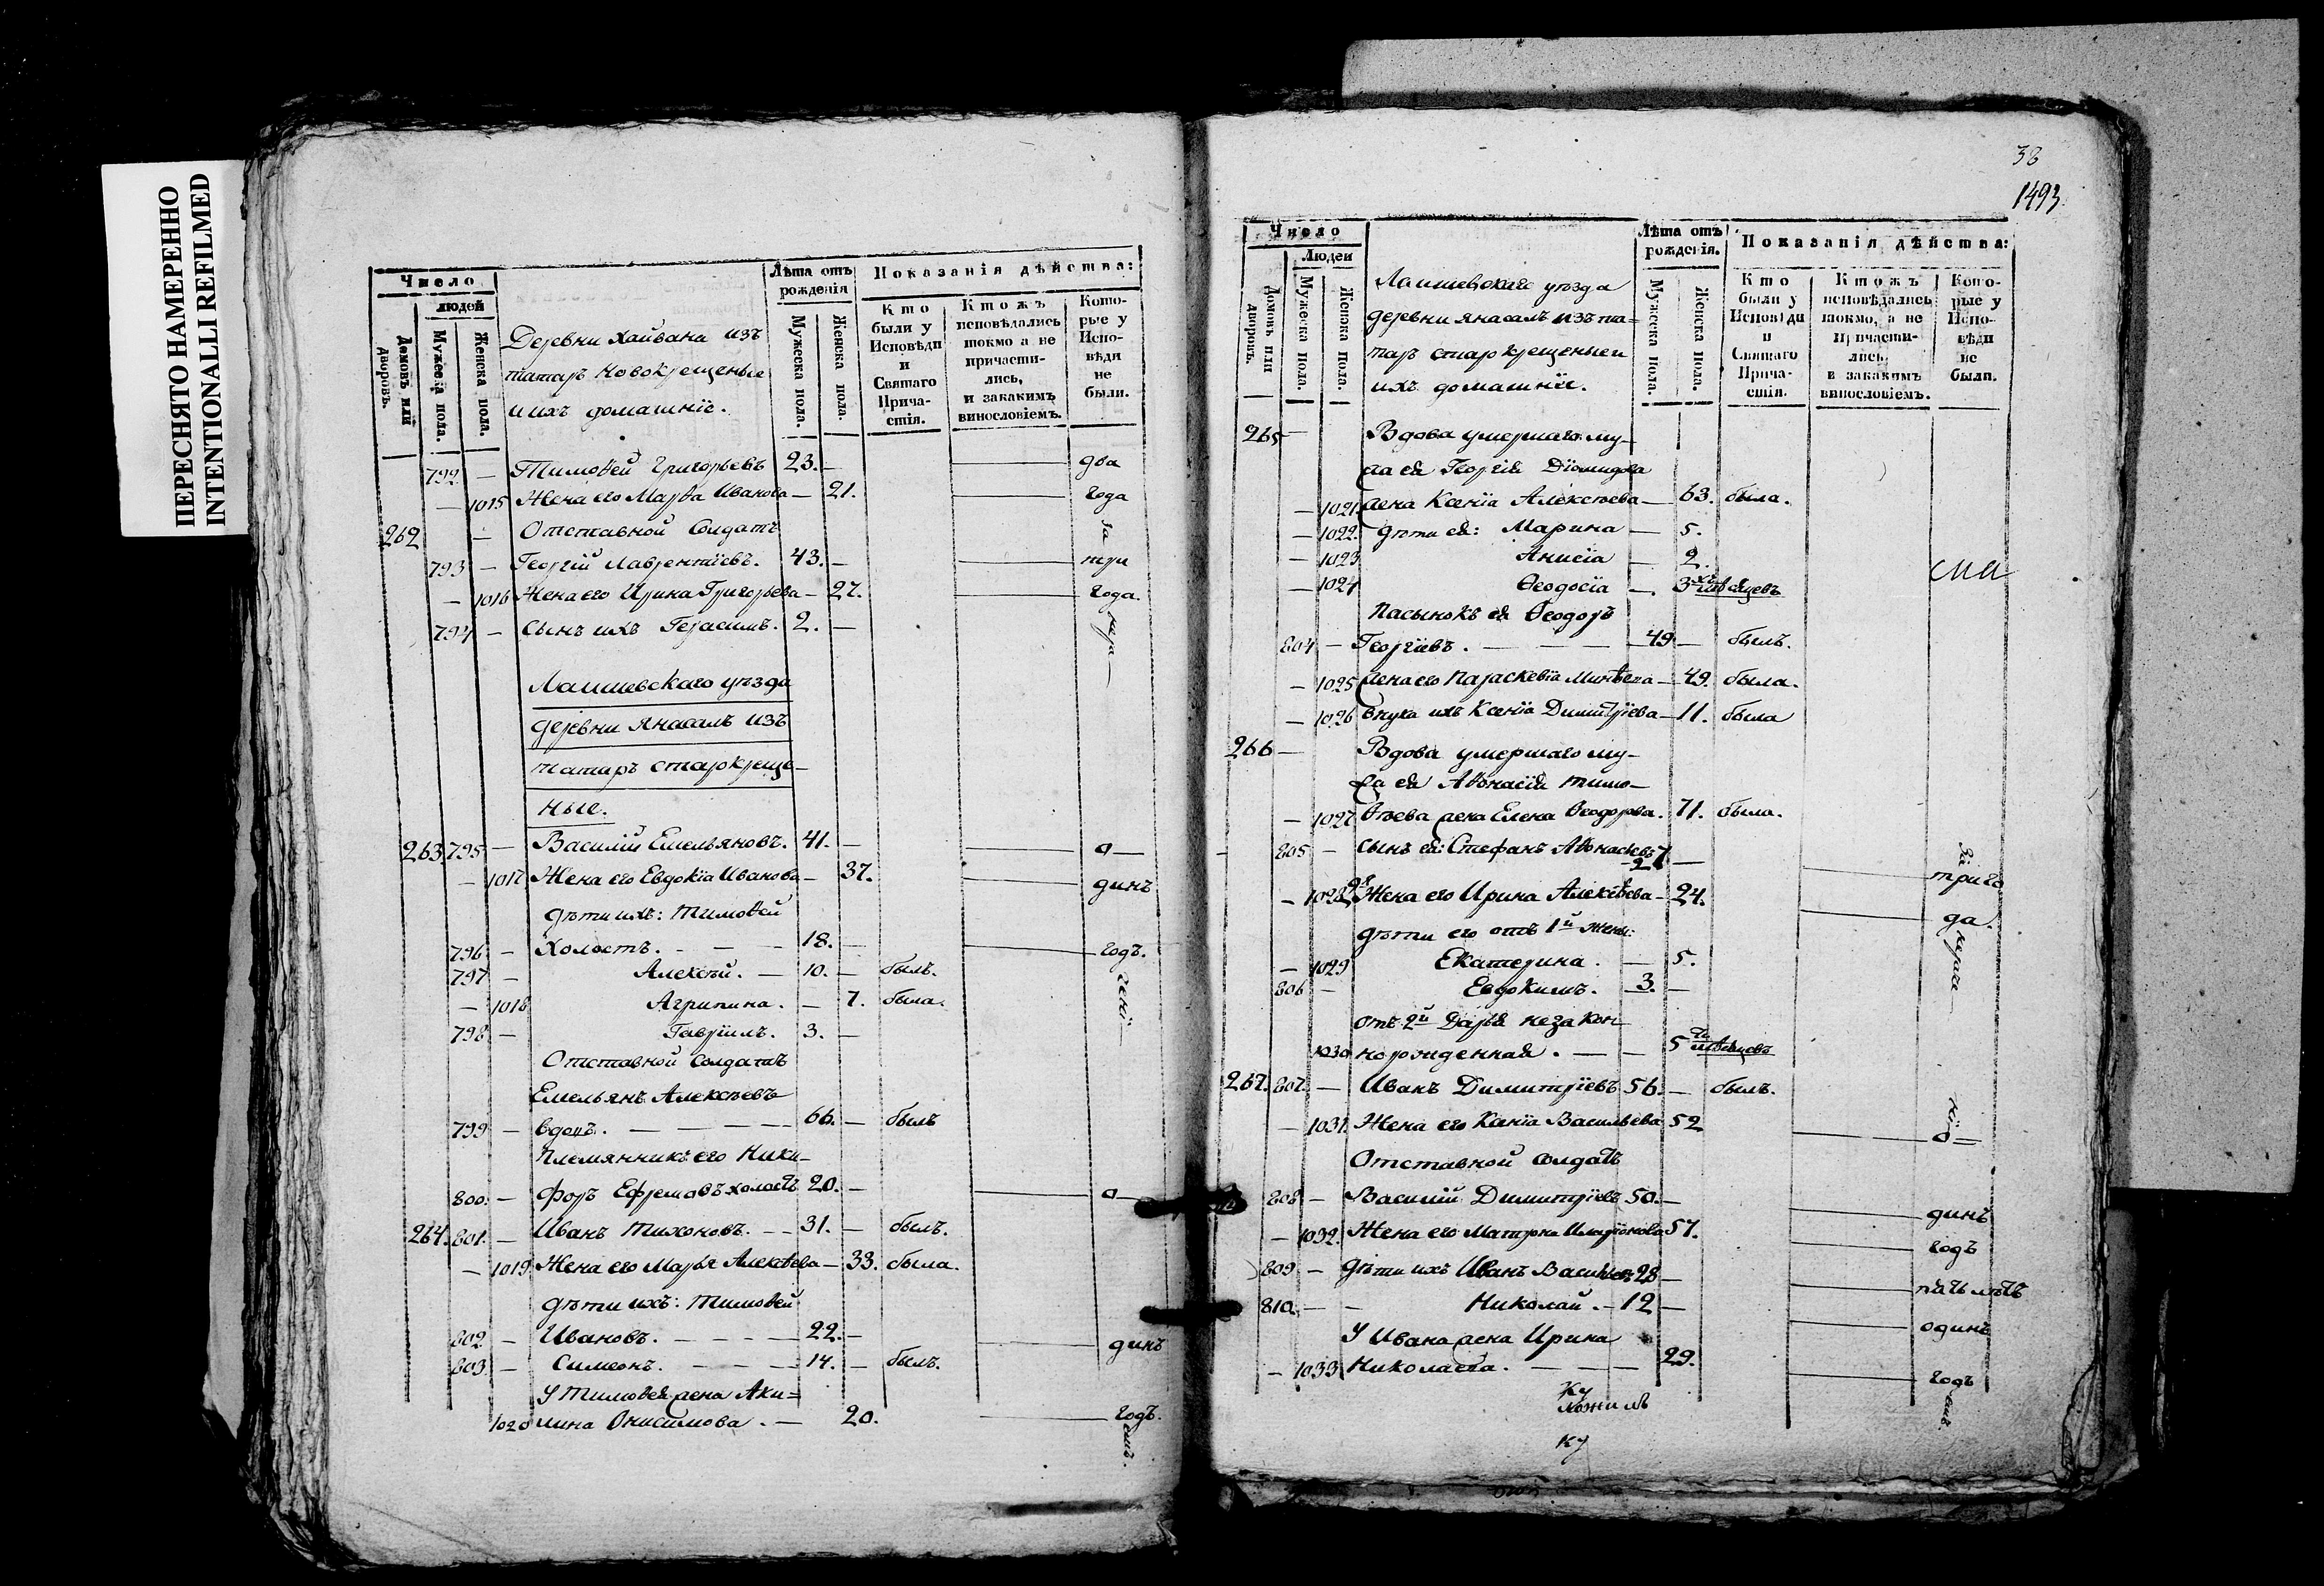 ПЕРЕСНЯТО НАМЕРЕННО
INTENTIONALLI REFILMED
Число
людей
Домовъ или дворовъ.
Мужеска пола.
Женска пола.
Деревни Хайвани изъ
татаръ новокрещеные
и ихъ домашніе.
Лѣта отъ рожденія
Мужеска пола.
Женска пола.
Показанія дѣйства:
Кто были у Исповѣди и Святаго Причастія.
Кто жъ исповѣдались токмо а не причастились, и закакимъ винословіемъ.
Которые у Исповѣди не были.
792 — Тимоѳей Григорьевъ 23. — два
— 1015 Жена его Марѳа Иванова — 21. года
262 — Отставной Солдатъ за
793 — Георгій Лаврентіевъ. 43. — три
— 1016 Жена его Ирина Григорьева — 27. года.
794 — Сынъ ихъ Герасимъ. 2. —
Лаишевскаго уѣзда
деревни Янасалъ изъ
татаръ старокреще-
ные.
263 795 — Василій Емельяновъ. 41. — о—
— 1017 Жена его Евдокіа Иванова — 37. динъ
дѣти ихъ: Тимоѳей
796 — Холостъ. — — — 18. — годъ.
797 — Алексѣй. — 10. — былъ.
— 1018 Агрипина. — 7. была.
798 — Гавріилъ. 3. —
Отставной солдатъ
Емельянъ Алексѣевъ
799 — вдовъ. — — — 66. — былъ
Племянникъ его Ники-
800. — форъ Ефремовъ холостъ 20. — о—
264. 801. — Иванъ Тихоновъ. — — 31. — былъ.
— 1019. Жена его Марья Алексѣева — 33. была.
дѣти ихъ: Тимоѳей
802 — Ивановъ. — — — 22. — динъ
803 — Симеонъ. — — — 14. — былъ.
У Тимоѳея жена Аки=
1020 лина Онисимова. — 20. годъ.
38
1493
Число
Людей
Домовъ или дворовъ.
Мужеска пола.
Женска пола.
Лаишевскаго уѣзда
деревни Янасалъ изъ та=
таръ старокрещеные и
ихъ домашніе.
Лѣта отъ рожденія.
Мужеска пола.
Женска пола.
Показанія дѣйства:
Кто были у Исповѣди и Святаго Причастія.
Кто жъ исповѣдались токмо, а не Причастились, и закакимъ винословіемъ.
Которые у Исповѣди не были.
265 — Вдова умершаго му-
жа ея Георгія Діомидова
— 1021. жена Ксеніа Алексѣева — 63. была.
— 1022. дѣти ея: Марина — 5.
— 1023 Анисіа — 2.
— 1024 Ѳеодосіа — 3хъ мѣсяцевъ
Пасынокъ ея Ѳеодоръ
804 — Георгіевъ. — — — 49 — былъ.
— 1025 жена его Параскевіа Минѣева — 49. была.
— 1026 внука ихъ Ксеніа Димитріева — 11. была
266 — Вдова умершаго му-
жа ея Аѳонасія Тимо-
— 1027 ѳѣева жена Елена Ѳеодорова. 71. была.
805 — Сынъ ея: Стефанъ Аѳонасьевъ 27 — За
— 1028 2я Жена его Ирина Алексѣева — 24. триго
дѣти его отъ 1й жены: да.
— 1029 Екатерина. — 5.
806 — Евдокимъ. — 3. —
отъ 2й Дарья незакон-
1030 норожденная. — — 5ти мѣсяцевъ
267. 807. — Иванъ Димитріевъ 56. — былъ.
— 1031. Жена его Ксеніа Васильева 52 о—
Отставной солдатъ
808 — Василій Димитріевъ 50. — динъ
— 1032. Жена его Матрона Иларіонова 57. годъ
809 — дѣти ихъ Иванъ Васильевъ 28 — пять лѣтъ
810. — Николай. — 12 — одинъ
У Ивана жена Ирина
— 1033 Николаева. — — — 29. годъ
Ку
ку